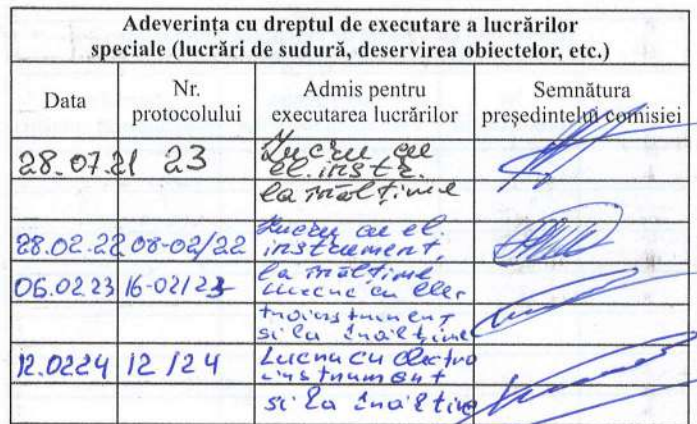 Adeverința cu dreptul de executare a lucrărilor
speciale (lucrări de sudură, deservirea obiectelor, etc.)
Data
Nr. protocolului
Admis pentru executarea lucrărilor
Semnătura președintelui comisiei
28.07.21 23 Lucru cu
el. instr.
la înălțime
28.02.22 08-02/22 Lucru cu el.
instrument,
la înălțime
06.02.23 16-02/23 Lucru cu elec
troinstrument
si la înălțime
12.0224 12/24 Lucru cu electro
instrument
si la înălțime